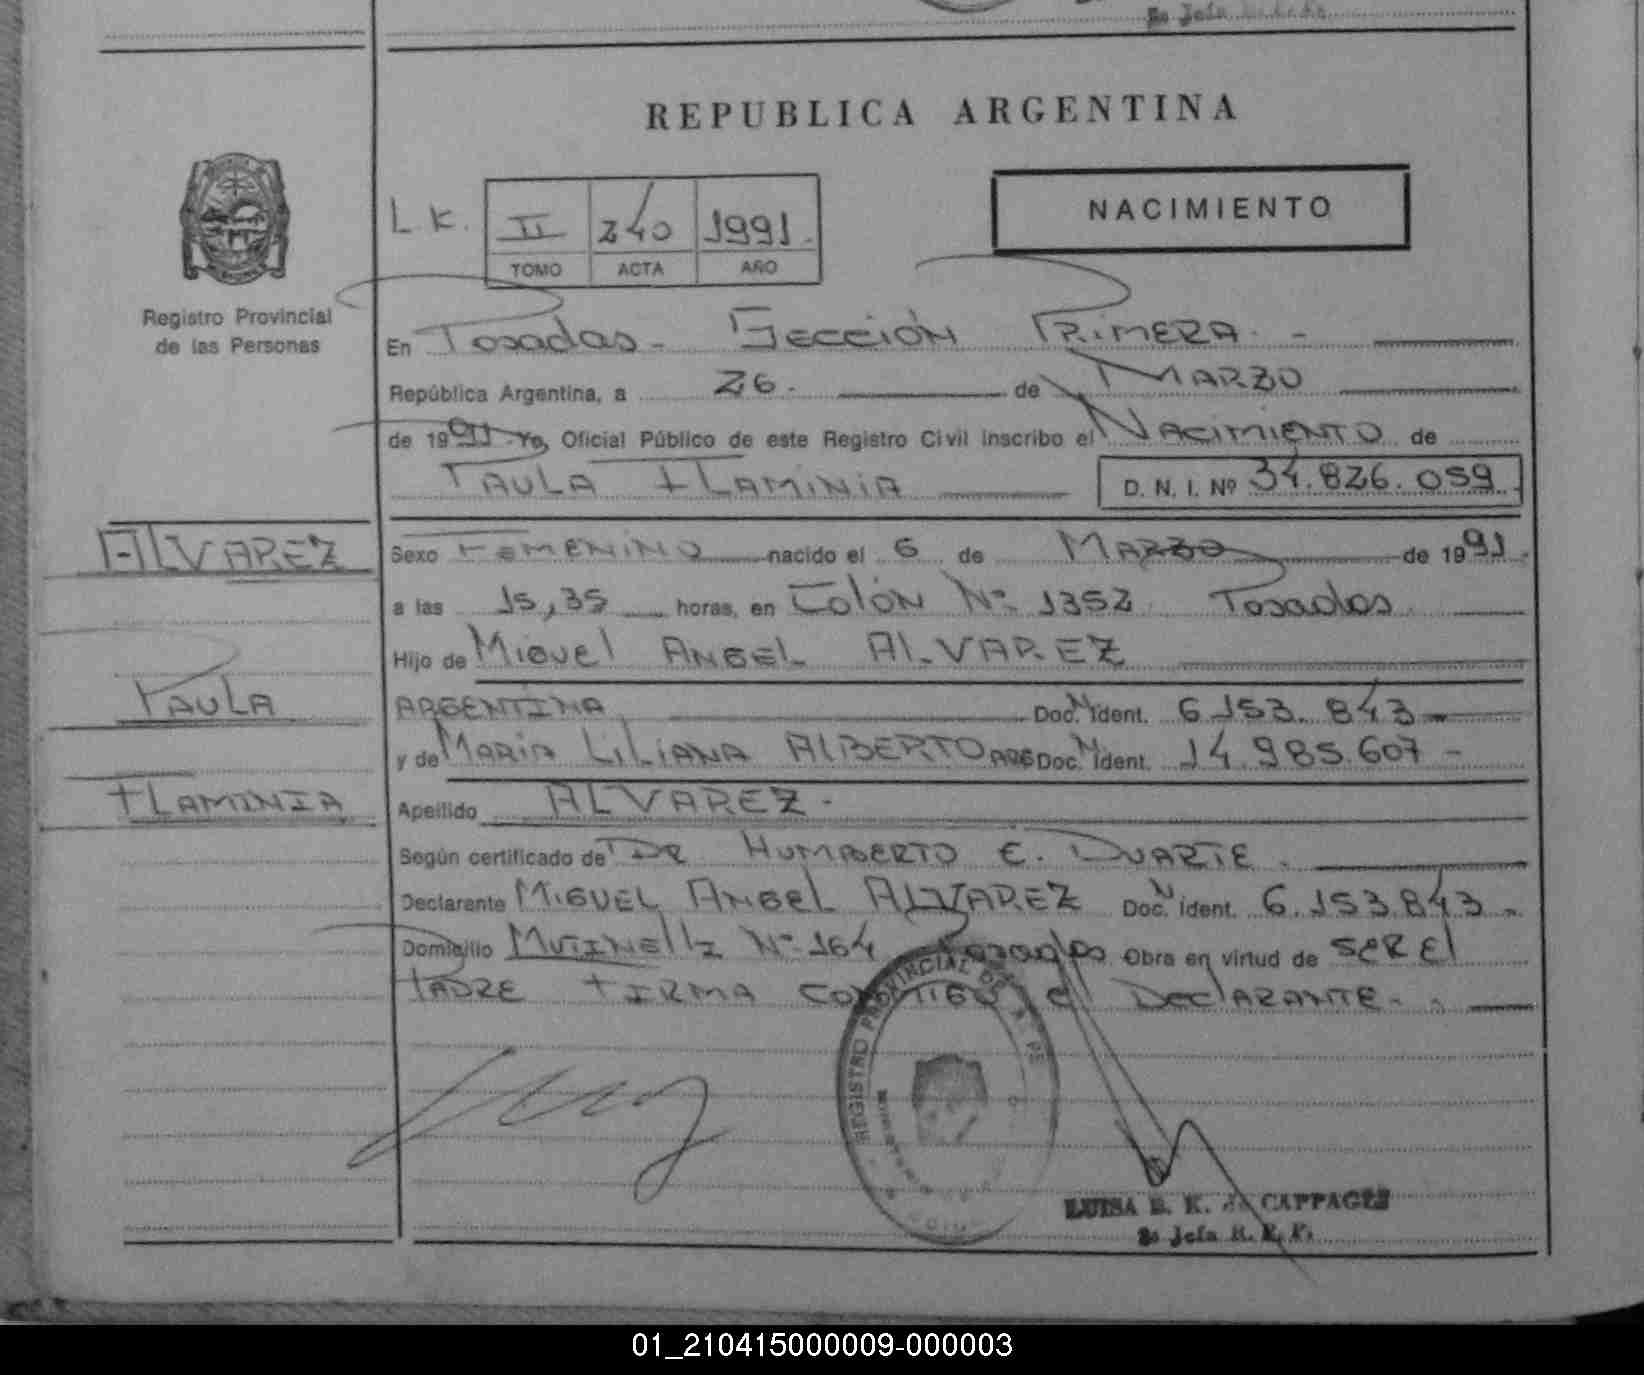 2o Jefa R.
REPUBLICA ARGENTINA
L.K. II 240 1991.
TOMO ACTA AÑO
NACIMIENTO
Registro Provincial
de las Personas
En Posadas - Sección Primera. -
República Argentina, a 26. de Marzo
de 1991 Yo, Oficial Público de este Registro Civil inscribo el Nacimiento de
Paula Flaminia D. N. I. Nº 34.826.059
ALVAREZ
Paula
Flaminia
Sexo Femenino nacido el 6 de Marzo de 1991.
a las 15,35 horas, en Colón Nº 1352 Posadas
Hijo de Miguel Angel ALVAREZ
ARGENTINA Doc. Ident. 6.153.843 -
y de Maria Liliana ALBERTO ARG Doc. Ident. 14.985.607 -
Apellido ALVAREZ.
Según certificado de Dr Humberto E. Duarte.
Declarante Miguel Angel ALVAREZ Doc. Ident. 6.153.843 -
Domicilio Nº 164 Posadas Obra en virtud de ser el
Padre Firma conmigo el Declarante.
REGISTRO PROVINCIAL DE LAS PE
LUISA B. K. de CAPPAGES
2o Jefa R. K. P.
01_210415000009-000003